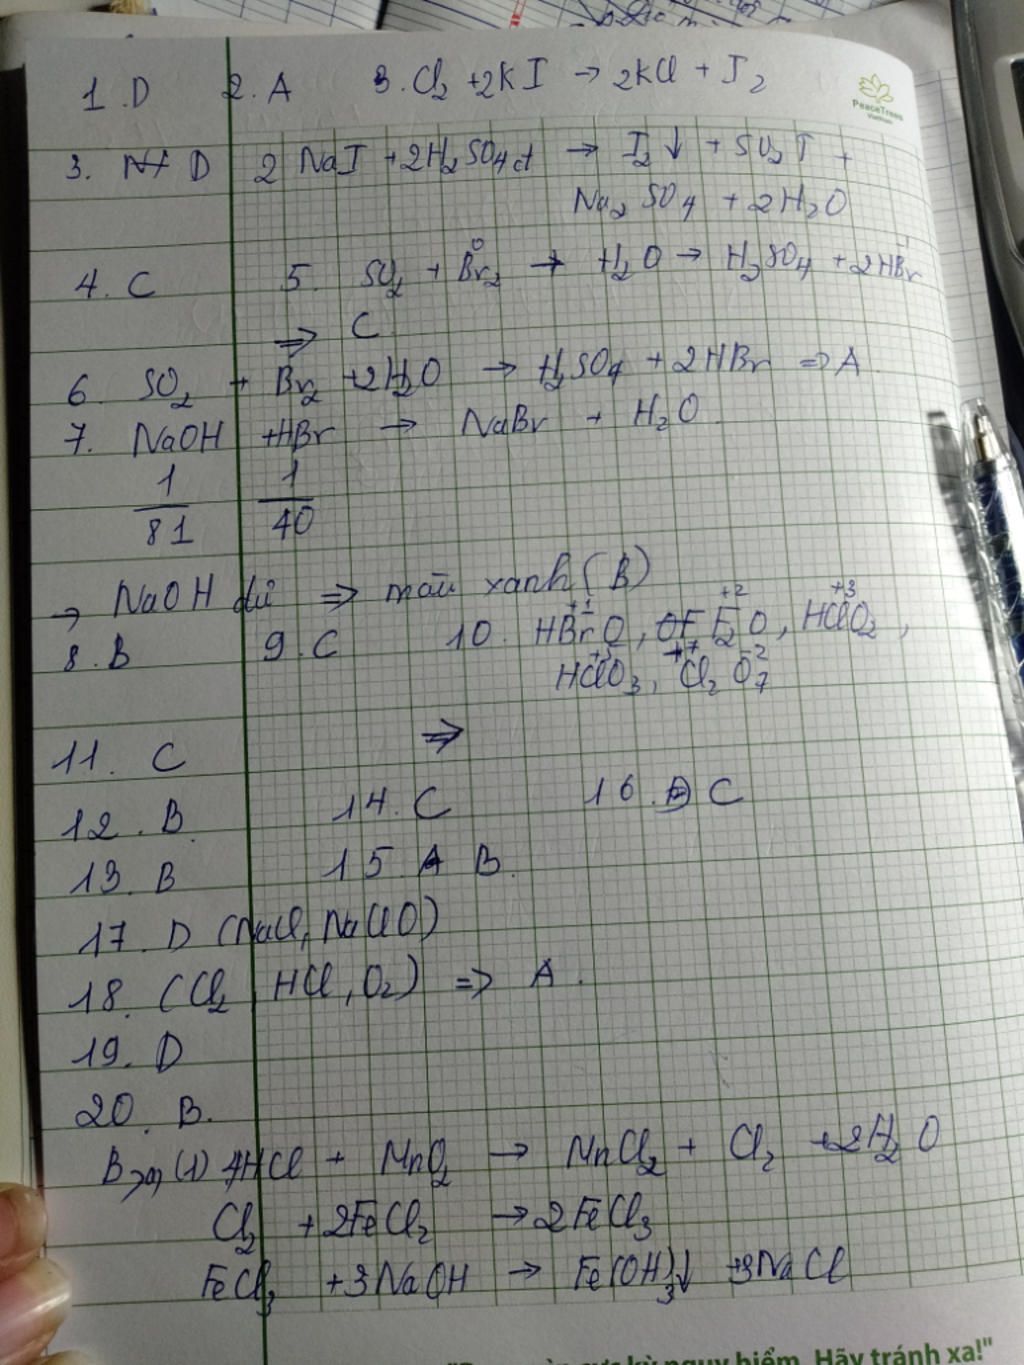 1.D 2.A 3. Cl2 + 2KI → 2KCl + I2
PeaceTrees
Vietnam
3. D 2 NaI + 2H2SO4đ → I2↓ + SO2↑ +
Na2SO4 + 2H2O
4. C 5. SO2 + Br2 → H2O → H2SO4 + 2HBr
⇒ C
6. SO2 + Br2 + 2H2O → H2SO4 + 2HBr ⇒ A
7. NaOH + HBr → NaBr + H2O
1/81 1/40
→ NaOH dư ⇒ màu xanh (B)
8. B 9. C 10. HBrO, F2O, HClO2,
HClO3, Cl2O7
11. C ⇒
12. B. 14. C 16. C
13. B 15 B.
17. D (NaCl, NaClO)
18. (Cl2, HCl, O2) ⇒ A.
19. D
20. B.
(1) 4HCl + MnO2 → MnCl2 + Cl2 + 2H2O
Cl2 + 2FeCl2 → 2FeCl3
FeCl3 + 3NaOH → Fe(OH)3↓ + 3NaCl
nguy hiểm. Hãy tránh xa!"